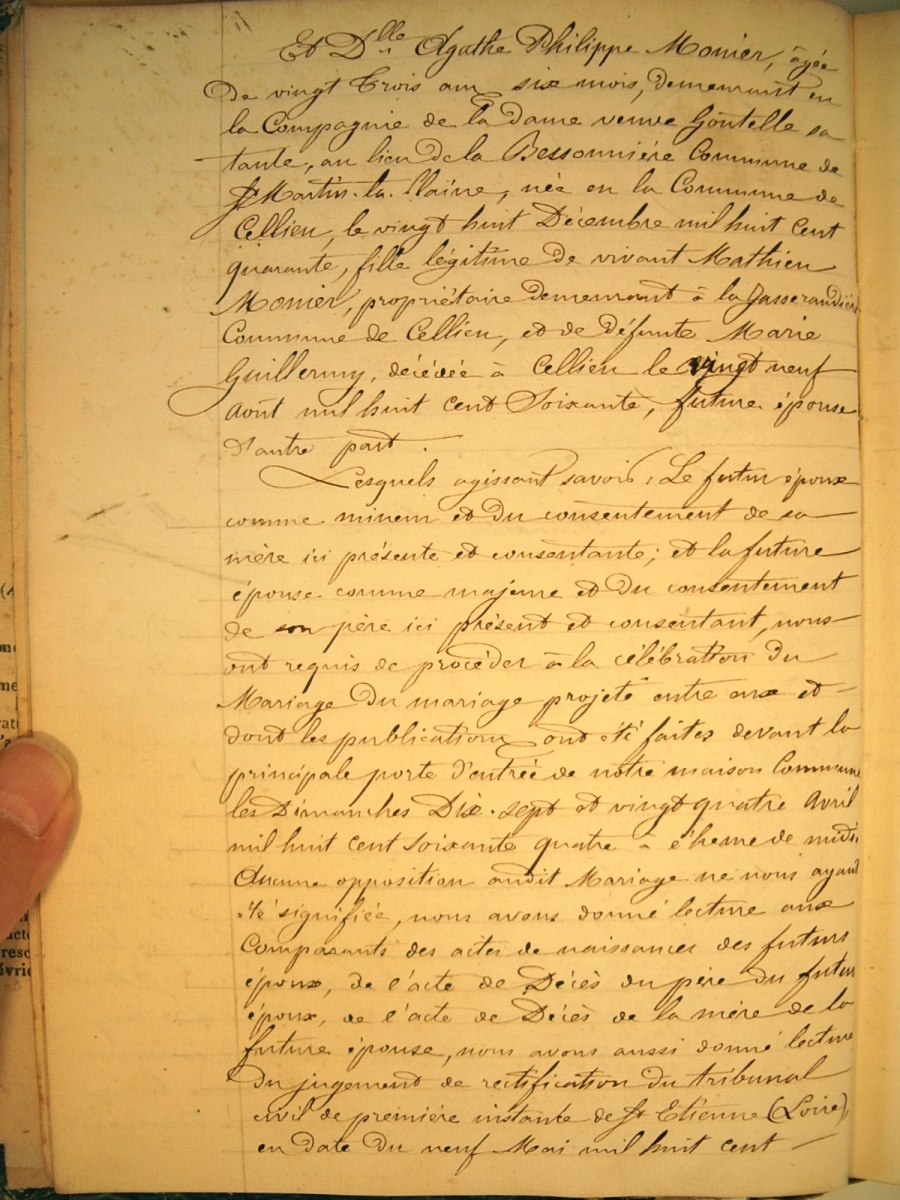 Et Dlle Agathe Philippe Monier, âgée
de vingt trois ans six mois, demeurant en
la Compagnie de la dame veuve Goutelle sa
tante, au lieu de la Bessonnière Commune de
St Martin-la-Plaine, née en la Commune de
Cellieu, le vingt huit Décembre mil huit cent
quarante, fille légitime de vivant Mathieu
Monier, propriétaire demeurant à la Jasserandière
Commune de Cellieu, et de défunte Marie
Guillermy, décédée à Cellieu le vingt neuf
août mil huit cent soixante, future épouse
d'autre part.
Lesquels agissant savoir, Le futur époux
comme mineur et du consentement de sa
mère ici présente et consentante; et la future
épouse comme majeure et du consentement
de son père ici présent et consentant, nous
ont requis de procéder à la célébration du
Mariage du mariage projeté entre eux et
dont les publications ont été faites devant la
principale porte d'entrée de notre maison Commune
les Dimanches Dix-sept et vingt quatre Avril
mil huit cent soixante quatre à l'heure de midi.
Aucune opposition audit Mariage ne nous ayant
été signifiée, nous avons donné lecture aux
Comparants des actes de naissances des futurs
époux, de l'acte de Décès du père du futur
époux, de l'acte de Décès de la mère de la
future épouse, nous avons aussi donné lecture
du jugement de rectification du tribunal
civil de première instance de St Etienne (Loire)
en date du neuf Mai mil huit cent